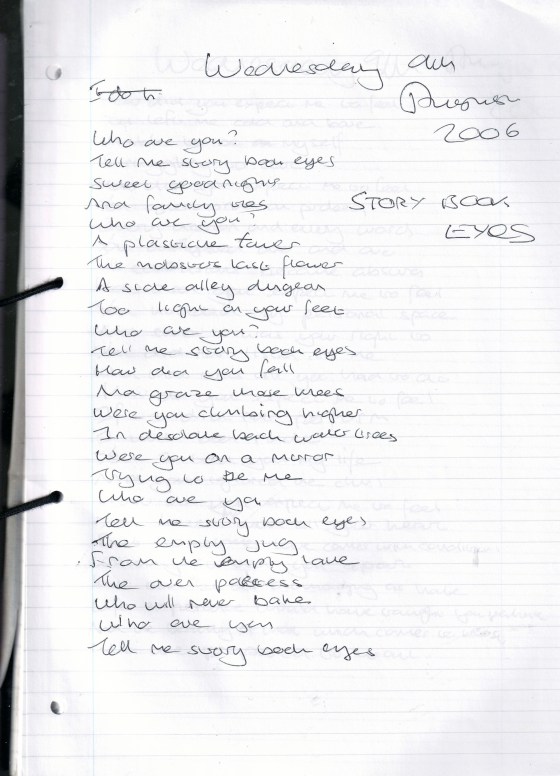 Wednesday 9th
August
2006
Who are you?
Tell me story book eyes
Sweet goodnights
And family ties
STORY BOOK
EYES
Who are you?
A plasticine
The last flower
A side alley dungeon
Too light on your feet
Who are you?
Tell me story book eyes
How did you fall
And graze those knees
Were you climbing higher
In desolate back water trees
Were you on a mirror
Trying to Be me
Who are you
Tell me story book eyes
The empty jug
From the empty
The oven
Who will never bake
Who are you
Tell me story book eyes